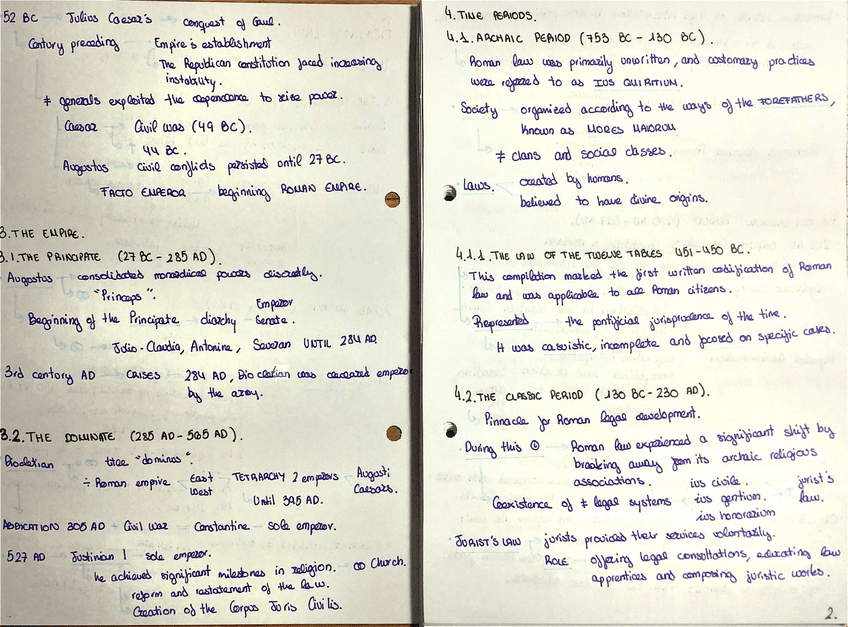 52 BC Julius Caesar's conquest of Gaul.
Century preceding Empire's establishment
The Republican constitution faced increasing
instability.
≠ generals exploited the dependance to seize power.
Caesar Civil war (49 BC).
44 BC.
Augustus civil conflicts persisted until 27 BC.
FACTO EMPEROR beginning ROMAN EMPIRE.
3. THE EMPIRE.
3.1. THE PRINCIPATE (27 BC - 285 AD).
Augustus consolidated monarchical powers discreetly.
"Princeps".
Beginning of the Principate diarchy Emperor
Senate.
Julio-Claudia, Antonine, Severan UNTIL 284 AD.
3rd century AD CRISES 284 AD, Diocletian was declared emperor
by the army.
3.2. THE DOMINATE (285 AD - 565 AD).
Diocletian title "dominus".
÷ Roman empire East
West TETRARCHY 2 emperors Augusti
Caesars.
Until 395 AD.
ABDICATION 305 AD + Civil War = Constantine - sole emperor.
527 AD Justinian I sole emperor.
he achieved significant milestones in religion. ∞ Church.
reform and restatement of the law.
Creation of the Corpus Juris Civilis.
4. TIME PERIODS.
4.1. ARCHAIC PERIOD (753 BC - 130 BC).
Roman law was primarily unwritten, and customary practices
were referred to as IUS QUIRITIUM.
Society organized according to the ways of the FOREFATHERS,
known as MORES MAIORUM
≠ clans and social classes.
Laws. created by humans.
believed to have divine origins.
4.1.1. THE LAW OF THE TWELVE TABLES 451-450 BC.
This compilation marked the first written codification of Roman
law and was applicable to all Roman citizens.
Represented the pontificial jurisprudence of the time.
It was casuistic, incomplete and focused on specific cases.
4.2. THE CLASSIC PERIOD (130 BC - 230 AD).
Pinnacle for Roman legal development.
During this Roman law experienced a significant shift by
breaking away from its archaic religious
associations.
Coexistence of ≠ legal systems ius civile. jurist's
ius gentium. law.
ius honorarium
JURIST'S LAW jurists provided their services voluntarily.
ROLE offering legal consultations, educating law
apprentices and composing juristic works.
2.